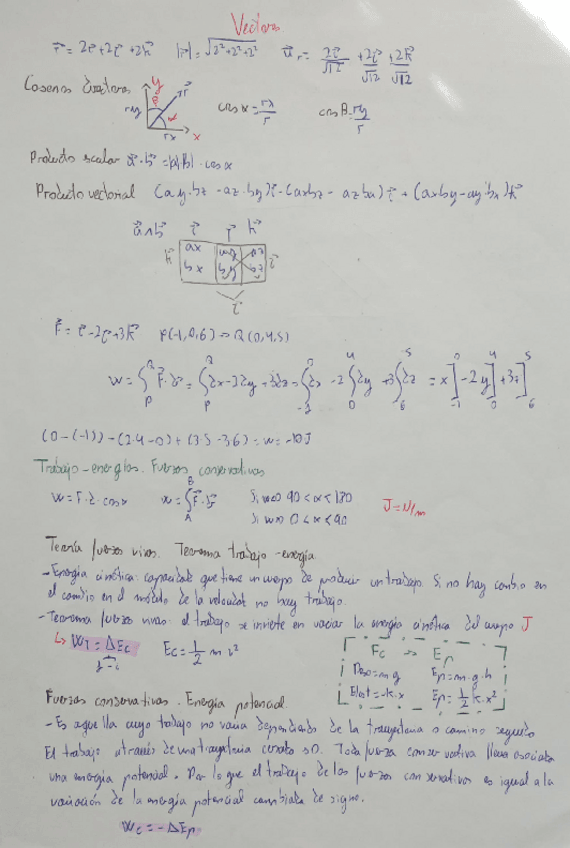 Vectores
r⃗ = 2i⃗ + 2j⃗ + 2k⃗   |r⃗| = √2²+2²+2²   u⃗r = 2i⃗/√12 + 2j⃗/√12 + 2k⃗/√12
Cosenos directores   y   r⃗   ry   rx   x   cos α = rx/r   cos B = ry/r
Producto scalar a⃗·b⃗ = |a|·|b|·cos α
Producto vectorial (ay·bz - az·by)i⃗ - (axbz - azbx)j⃗ + (axby - ay·bx)k⃗
a⃗∧b⃗   i⃗   j⃗   k⃗
k⃗   ax   ay   az   i⃗
bx   by   bz
j⃗
F⃗ = i⃗ - 2j⃗ + 3k⃗   P(-1,0,6) → Q(0,4,5)
W = ∫ F⃗·dr⃗ = ∫ dx - 2dy + 3dz = ∫ dx - 2∫dy + 3∫dz = x] - 2y] + 3z]
(0-(-1)) - (2·4-0) + (3·5-3·6) = w = -10J
Trabajo - energías. Fuerzas conservativas
W = F·r·cos α   W = ∫ F⃗·dr⃗   Si w<0 90 < α < 180   J = N/m
Si w>0 0 < α < 90
Teoría fuerzas vivas. Teorema trabajo - energía.
- Energía cinética: capacidad que tiene un cuerpo de producir un trabajo. Si no hay cambio en
el cambio en el módulo de la velocidad no hay trabajo.
- Teorema fuerzas vivas: el trabajo se invierte en variar la energía cinética del cuerpo J
↳ WT = ΔEc   Ec = 1/2 m v²   Fc → Ep
f - i   Peso = m·g   Ep = m·g·h
Elast = -k·x   Ep = 1/2 k·x²
Fuerzas conservativas. Energía potencial
- Es aquella cuyo trabajo no varía dependiendo de la trayectoria o camino seguido
El trabajo através de una trayectoria cerrada es 0. Toda fuerza conservativa lleva asociada
una energía potencial. Por lo que el trabajo de las fuerzas conservativas es igual a la
variación de la energía potencial cambiada de signo.
Wc = -ΔEp